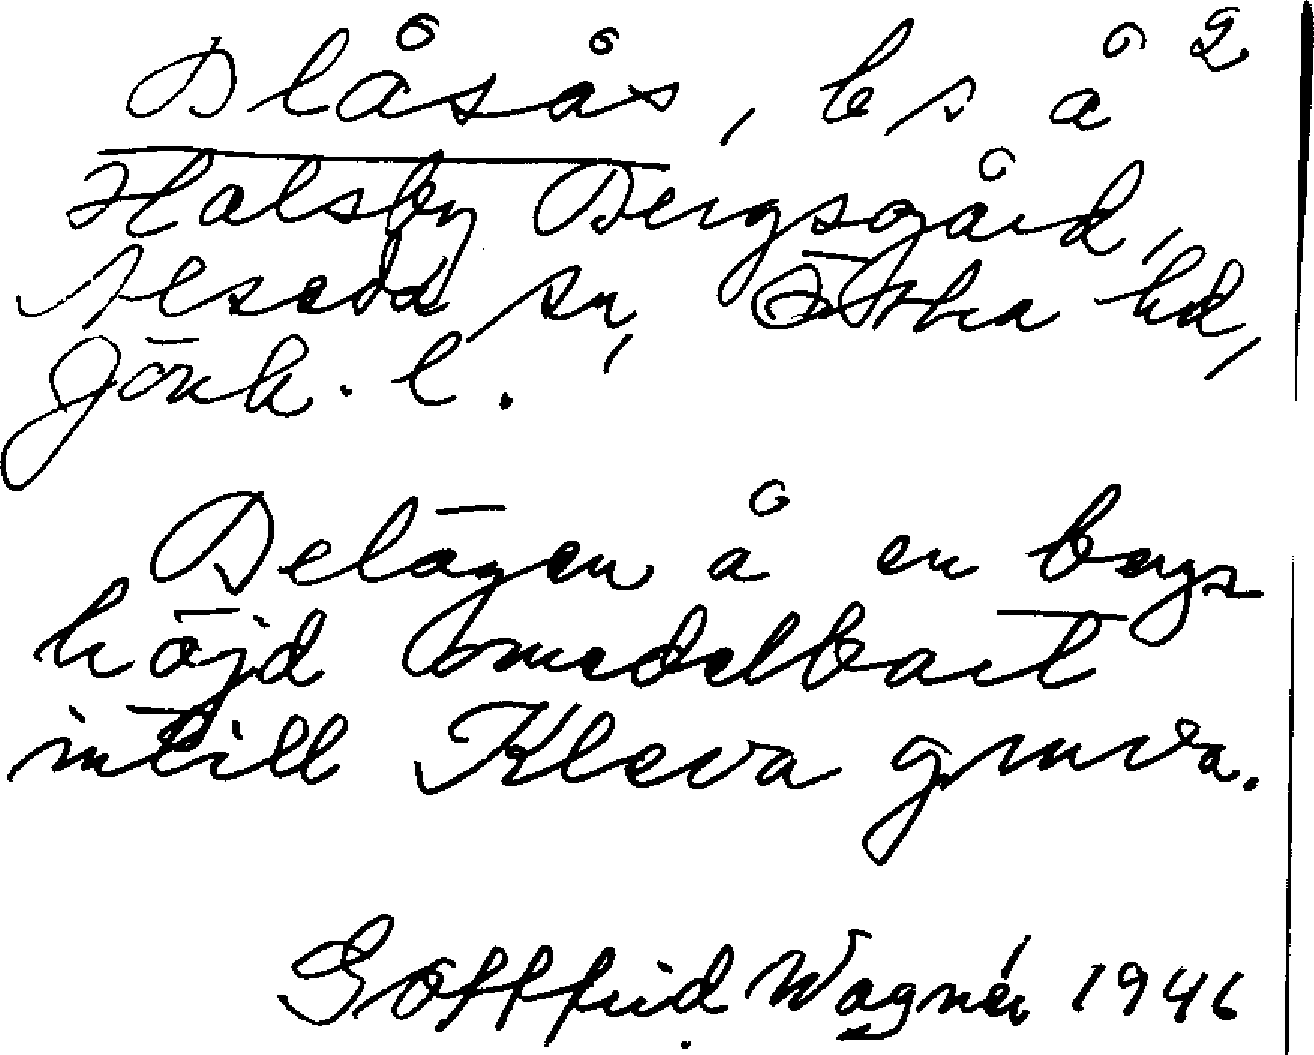 Blåsås, bs å 2
Halsby Bergsgård,
Alseda sn, Östra hd,
Jönk. l.
Belägen å en bergs
höjd omedelbart
intill Kleva gruva.
Gottfrid Wagnér 1946